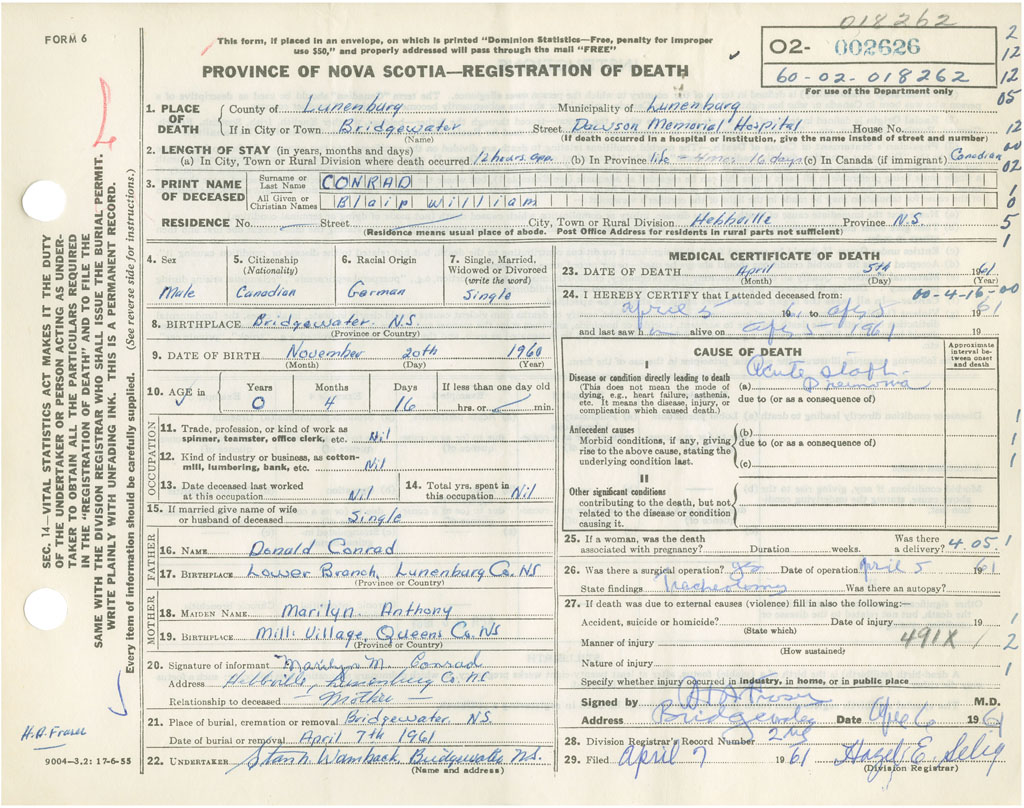 FORM 6
018262
This form, if placed in an envelope, on which is printed "Dominion Statistics—Free, penalty for improper
use $50," and properly addressed will pass through the mail "FREE"
02- 002626
60-02-018262
For use of the Department only
PROVINCE OF NOVA SCOTIA—REGISTRATION OF DEATH
1. PLACE OF DEATH County of Lunenburg Municipality of Lunenburg
If in City or Town Bridgewater Street Dawson Memorial Hospital House No.
(Name) (If death occurred in a hospital or institution, give the name instead of street and number)
2. LENGTH OF STAY (in years, months and days)
(a) In City, Town or Rural Division where death occurred 12 hours app. (b) In Province life - 4 mos 16 days (c) In Canada (if immigrant) Canadian
3. PRINT NAME OF DECEASED Surname or Last Name CONRAD
All Given or Christian Names Blair William
RESIDENCE No. Street City, Town or Rural Division Hebbville Province N.S.
(Residence means usual place of abode. Post Office Address for residents in rural parts not sufficient)
4. Sex Male
5. Citizenship (Nationality) Canadian
6. Racial Origin German
7. Single, Married, Widowed or Divorced (write the word) Single
8. BIRTHPLACE Bridgewater N.S.
(Province or Country)
9. DATE OF BIRTH November 20th 1960
(Month) (Day) (Year)
10. AGE in Years 0 Months 4 Days 16 If less than one day old hrs. or min.
OCCUPATION
11. Trade, profession, or kind of work as spinner, teamster, office clerk, etc. Nil
12. Kind of industry or business, as cotton-mill, lumbering, bank, etc. Nil
13. Date deceased last worked at this occupation Nil
14. Total yrs. spent in this occupation Nil
15. If married give name of wife or husband of deceased Single
FATHER
16. NAME Donald Conrad
17. BIRTHPLACE Lower Branch, Lunenburg Co. NS
(Province or Country)
MOTHER
18. MAIDEN NAME Marilyn Anthony
19. BIRTHPLACE Mill Village, Queens Co. NS
(Province or Country)
20. Signature of informant Marilyn M. Conrad
Address Hebbville, Lunenburg Co. NS
Relationship to deceased Mother
21. Place of burial, cremation or removal Bridgewater, N.S.
Date of burial or removal April 7th 1961
22. UNDERTAKER Stan h. Wamback Bridgewater N.S.
(Name and address)
MEDICAL CERTIFICATE OF DEATH
23. DATE OF DEATH April 5th 1961
(Month) (Day) (Year)
24. I HEREBY CERTIFY that I attended deceased from: 00-4-16-00
April 5 1961 to Apr 5 1961
and last saw h alive on Apr 5 1961 19
CAUSE OF DEATH
Approximate interval between onset and death
I
Disease or condition directly leading to death
(This does not mean the mode of dying, e.g., heart failure, asthenia, etc. It means the disease, injury, or complication which caused death.)
(a) Acute staph. Pneumonia
due to (or as a consequence of)
Antecedent causes
Morbid conditions, if any, giving rise to the above cause, stating the underlying condition last.
(b)
due to (or as a consequence of)
(c)
II
Other significant conditions
contributing to the death, but not related to the disease or condition causing it.
25. If a woman, was the death associated with pregnancy? Duration weeks. Was there a delivery? 4.05.
26. Was there a surgical operation? yes Date of operation April 5 1961
State findings Tracheotomy Was there an autopsy?
27. If death was due to external causes (violence) fill in also the following:—
Accident, suicide or homicide? Date of injury 19
(State which)
Manner of injury 491X
(How sustained)
Nature of injury
Specify whether injury occurred in industry, in home, or in public place
Signed by H A Fraser M.D.
Address Bridgewater Date Apr 6 1961
28. Division Registrar's Record Number
29. Filed April 7 1961 Hazel E. Selig
(Division Registrar)
SEC. 14—VITAL STATISTICS ACT MAKES IT THE DUTY
OF THE UNDERTAKER OR PERSON ACTING AS UNDER-
TAKER TO OBTAIN ALL THE PARTICULARS REQUIRED
IN THE "REGISTRATION OF DEATH" AND TO FILE THE
SAME WITH THE DIVISION REGISTRAR WHO SHALL ISSUE THE BURIAL PERMIT.
WRITE PLAINLY WITH UNFADING INK. THIS IS A PERMANENT RECORD.
Every item of information should be carefully supplied. (See reverse side for instructions.)
H.A. Fraser
9004—3.2: 17-6-55
2
12
12
05
12
00
02
1
0
5
1
1
1
1
1
1
2
1